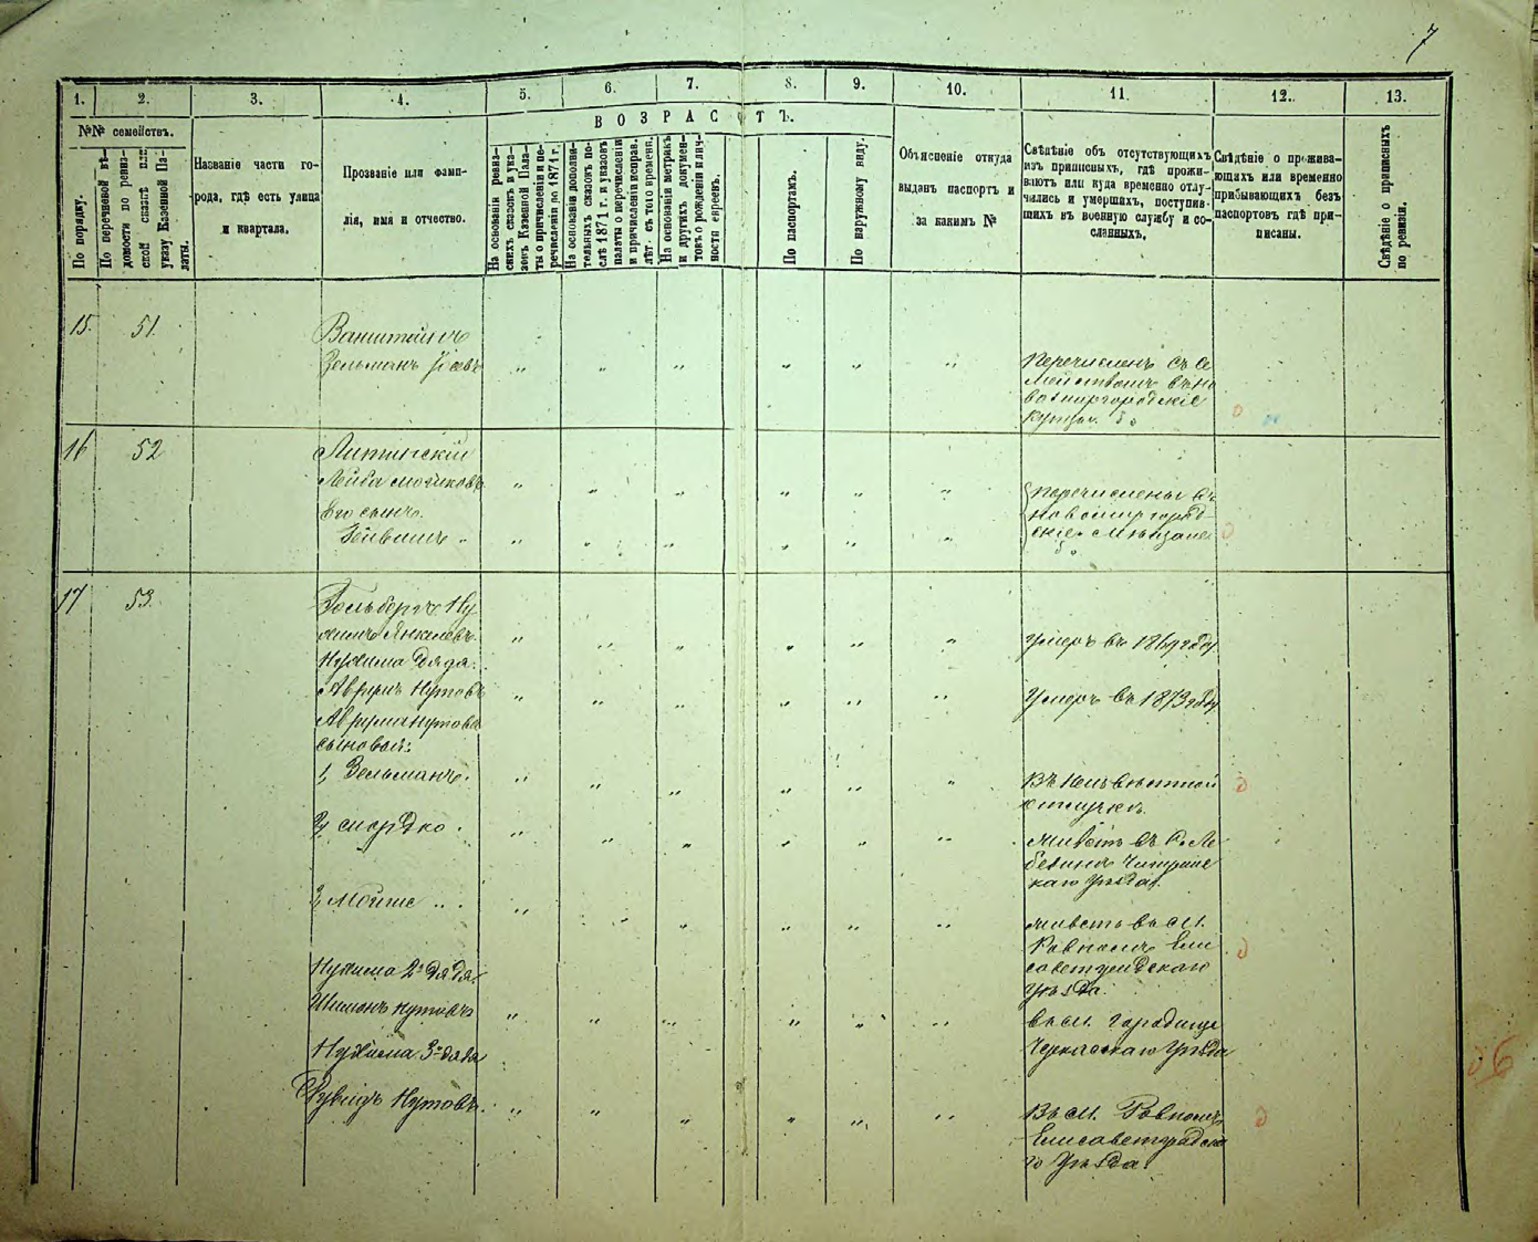 7
1. 2. 3. 4. 5. 6. 7. 8. 9. 10. 11. 12. 13.
№№ семействъ.
ВОЗРАСТЪ.
По порядку.
По перечневой вѣ-
домости по ревиз-
ской сказкѣ или
указу Казенной Па-
латы.
Названіе части го-
рода, гдѣ есть улица
и квартала.
Прозваніе или фами-
лія, имя и отчество.
На основаніи ревиз-
скихъ сказокъ и ука-
зовъ Казенной Пала-
ты о причисленіи и пе-
речисленіи до 1871 г.
На основаніи дополни-
тельныхъ сказокъ по-
слѣ 1871 г. и указовъ
палаты о перечисленіи
и причисленіи исправ.
лѣт. съ того времени.
На основаніи метрикъ
и другихъ докумен-
товъ о рожденіи и лич-
ности евреевъ.
По паспортамъ.
По наружному виду.
Объясненіе откуда
выданъ паспортъ и
за какимъ №
Свѣдѣніе объ отсутствующихъ
изъ приписныхъ, гдѣ прожи-
ваютъ или куда временно отлу-
чились и умершихъ, поступив-
шихъ въ военную службу и со-
сланныхъ.
Свѣдѣніе о прожива-
ющихъ или временно
прибывающихъ безъ
паспортовъ гдѣ при-
писаны.
Свѣдѣніе о приписныхъ
по ревизіи.
15. 51.
Ванштейнъ
Зельманъ Іосевъ
Перечисленъ съ се
мействомъ въ Но
вомиргородскіе
купцы.
16 52
Литинскій
Лейба
Его сынъ.
Перечислены въ
новомиргород-
скіе мѣщане
17 53.
Гольбергъ Ну
химъ Янкелевъ.
умеръ въ 1869 году
Нухима дядя.
Аврумъ Нутовъ
Умеръ въ 1873 году
Аврума Нутова
сыновья:
1, Зельманъ.
Въ неизвѣстной
отлучкѣ.
2, Мордко.
живетъ въ с. Ле
бединѣ Чигирин
скаго уѣзда.
3, Мойше
живетъ въ м.
Ровномъ Ели
саветградскаго
уѣзда.
Нухима 2й дядя.
Шимонъ Нутовъ
въ м. Городище
Черкасскаго уѣзда
Нухима 3й дядя
Рувинъ Нутовъ.
Въ м. Ровномъ
Елисаветградска
го уѣзда.
6